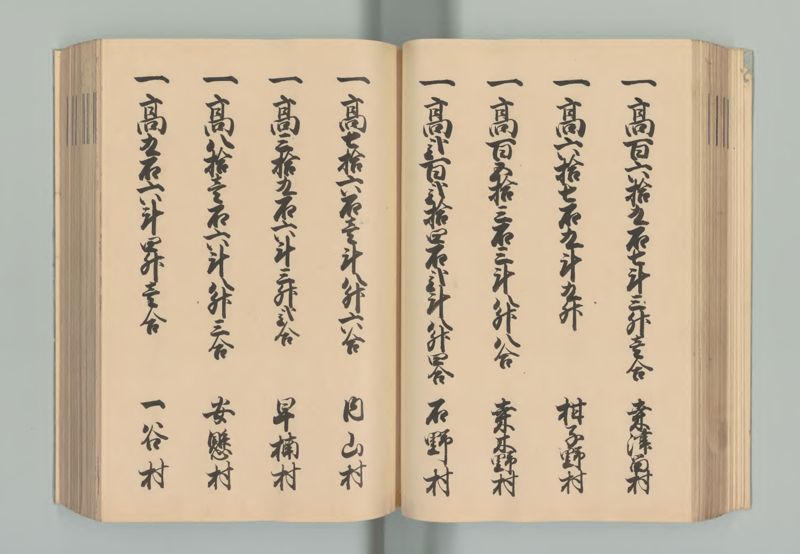 一 高百六拾九石七斗三升壱合 桒津留村
一 高六拾七石九斗九升 柑子野村
一 高百五拾三石三斗八升八合 桒木野村
一 高弐百弐拾四石弐斗八升四合 石野村
一 高七拾六石壱斗八升六合 月山村
一 高三拾九石六斗三升弐合 早楠村
一 高八拾壱石六斗八升三合 安懸村
一 高九石六斗四升壱合 一谷村